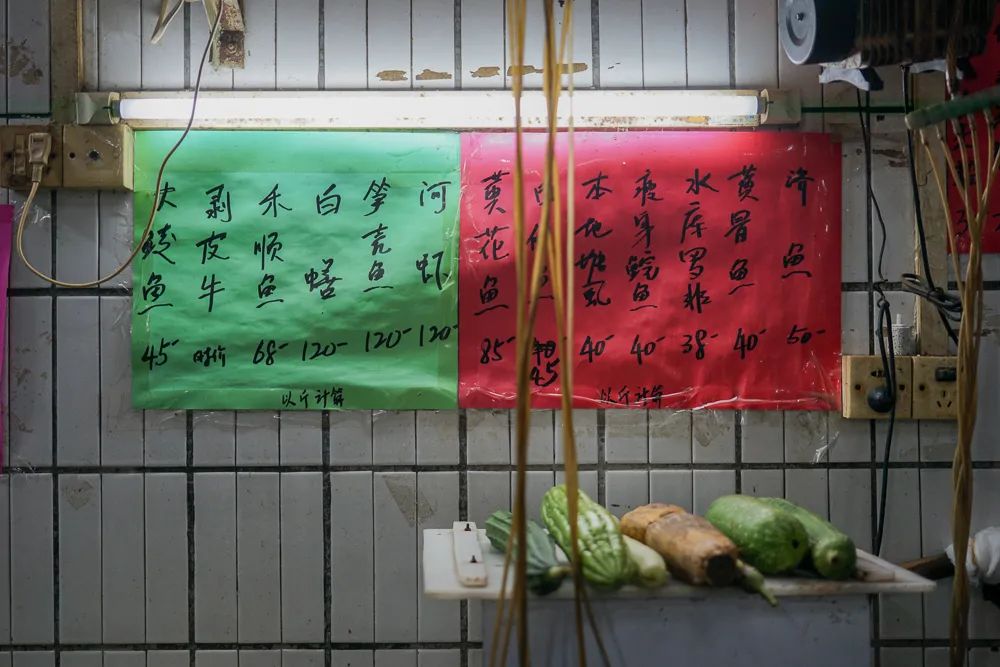 鱼 45-
剥皮牛 时价
禾顺鱼 68-
白鳝 120-
笋壳鱼 120-
河虾 120-
以斤计算
黄花鱼 85-
45
本地塘虱 40-
瘦身鲩鱼 40-
水库罗非 38-
黄骨鱼 40-
鱼 50-
以斤计算